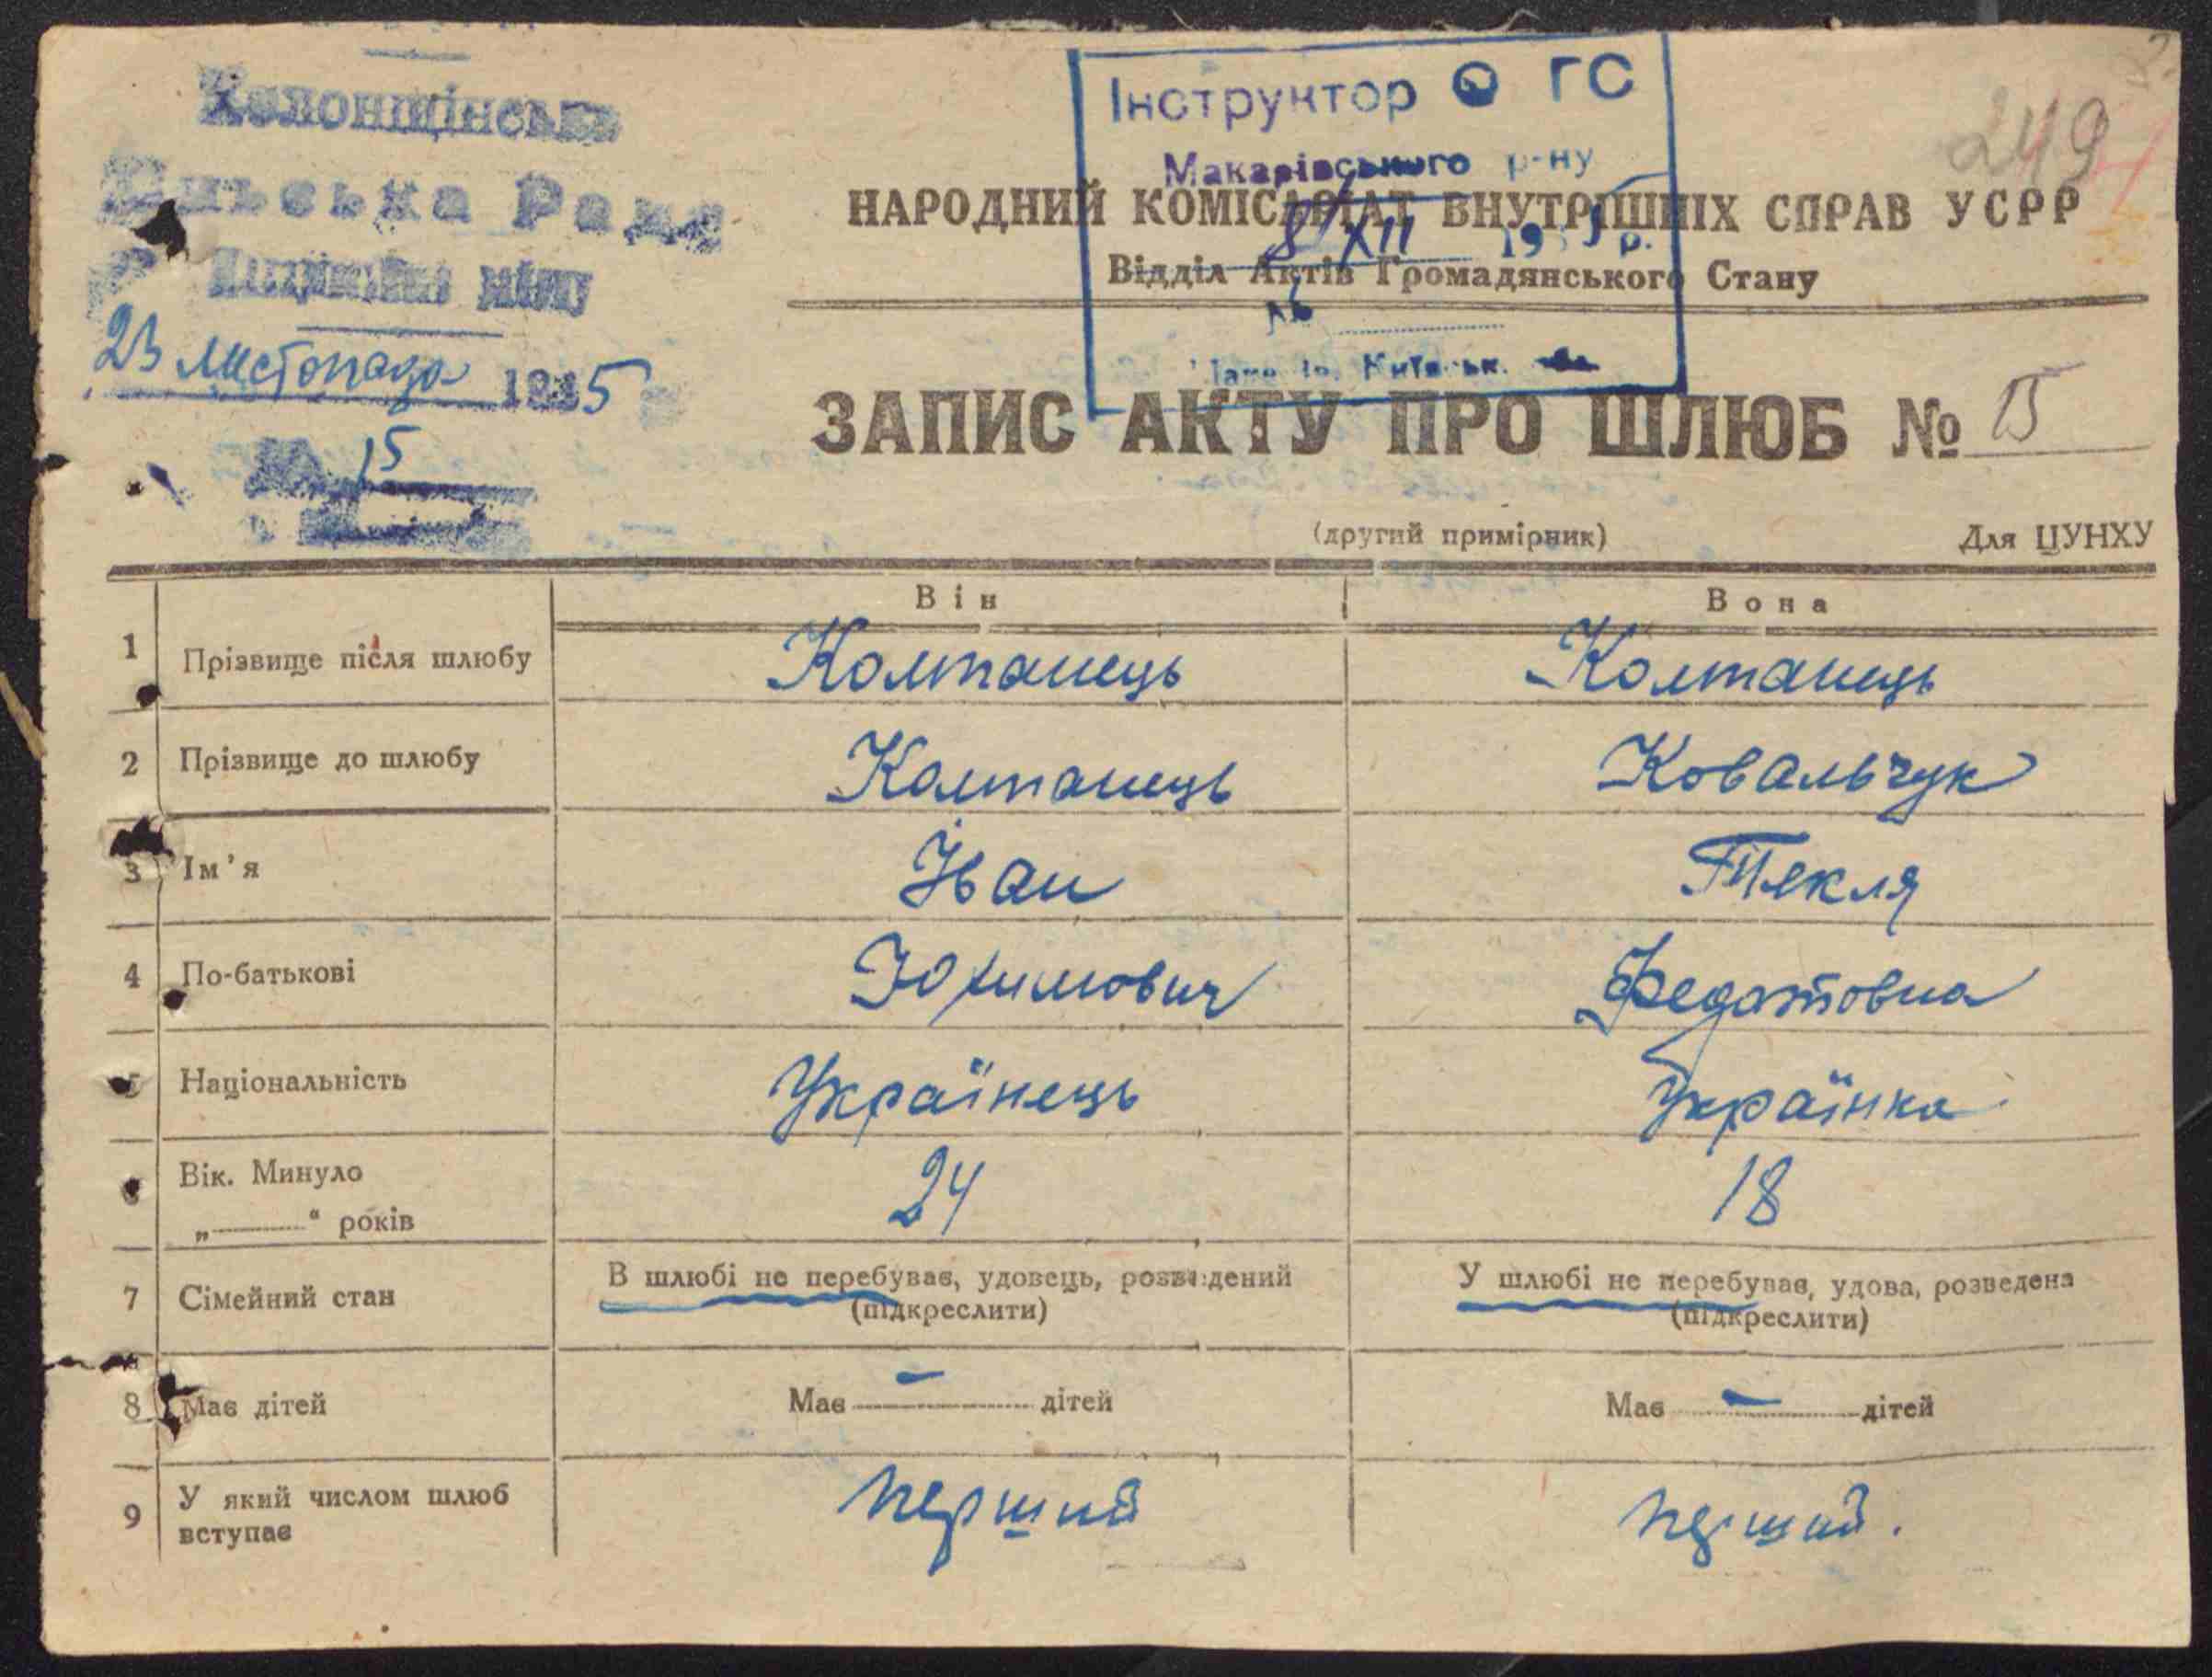 Колонщінська
Сільська Рада
23 листопада 1935
15
Інструктор ГС
Макарівського р-ну
8/XII 1935 р.
№
249
НАРОДНИЙ КОМІСАРІАТ ВНУТРІШНІХ СПРАВ УСРР
Відділ Актів Громадянського Стану
ЗАПИС АКТУ ПРО ШЛЮБ № 15
(другий примірник) Для ЦУНХУ
Він Вона
1 Прізвище після шлюбу Колтанець Колтанець
2 Прізвище до шлюбу Колтанець Ковальчук
3 Ім'я Іван Текля
4 По-батькові Юхимович Федотовна
5 Національність Українець Українка
Вік. Минуло 24 18
„ “ років
7 Сімейний стан В шлюбі не перебував, удовець, розведений У шлюбі не перебував, удова, розведена
(підкреслити) (підкреслити)
8 Має дітей Має – дітей Має – дітей
9 У який числом шлюб вступає перший перший.